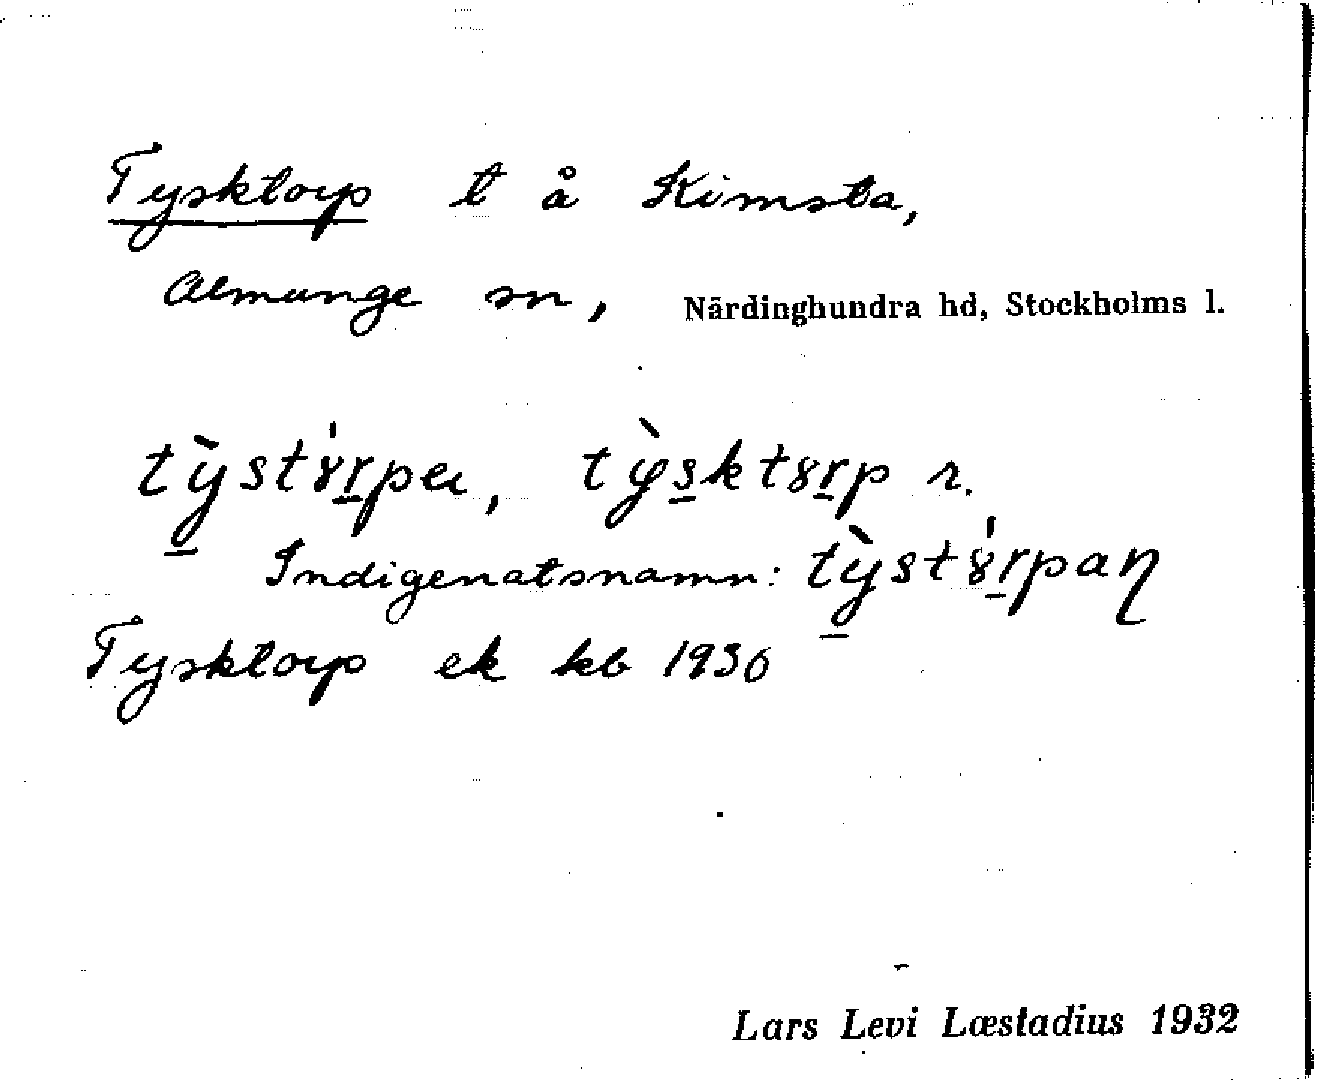 Tysktorp t å Kimsta,
Almunge sn, Närdinghundra hd, Stockholms l.
tỳ̱st8́ṟpeɩ, tỳs̱kt8ṟp r.
Indigenatsnamn: tỳ̱st8́ṟpaɳ
Tysktorp ek kb 1930
Lars Levi Læstadius 1932